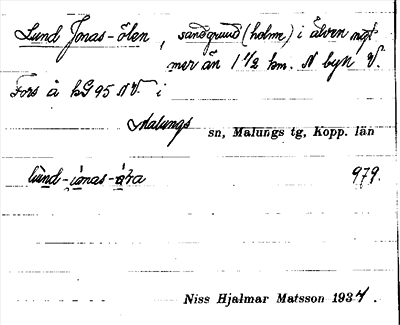 Lund Jonas-ölen, sandgrund (holm) i älven något
mer än 1 1/2 km. N byn V.
Fors å kG 95 NV. i
Malungs sn, Malungs tg, Kopp. län
lund-jonas- 979.
Niss Hjalmar Matsson 1934.